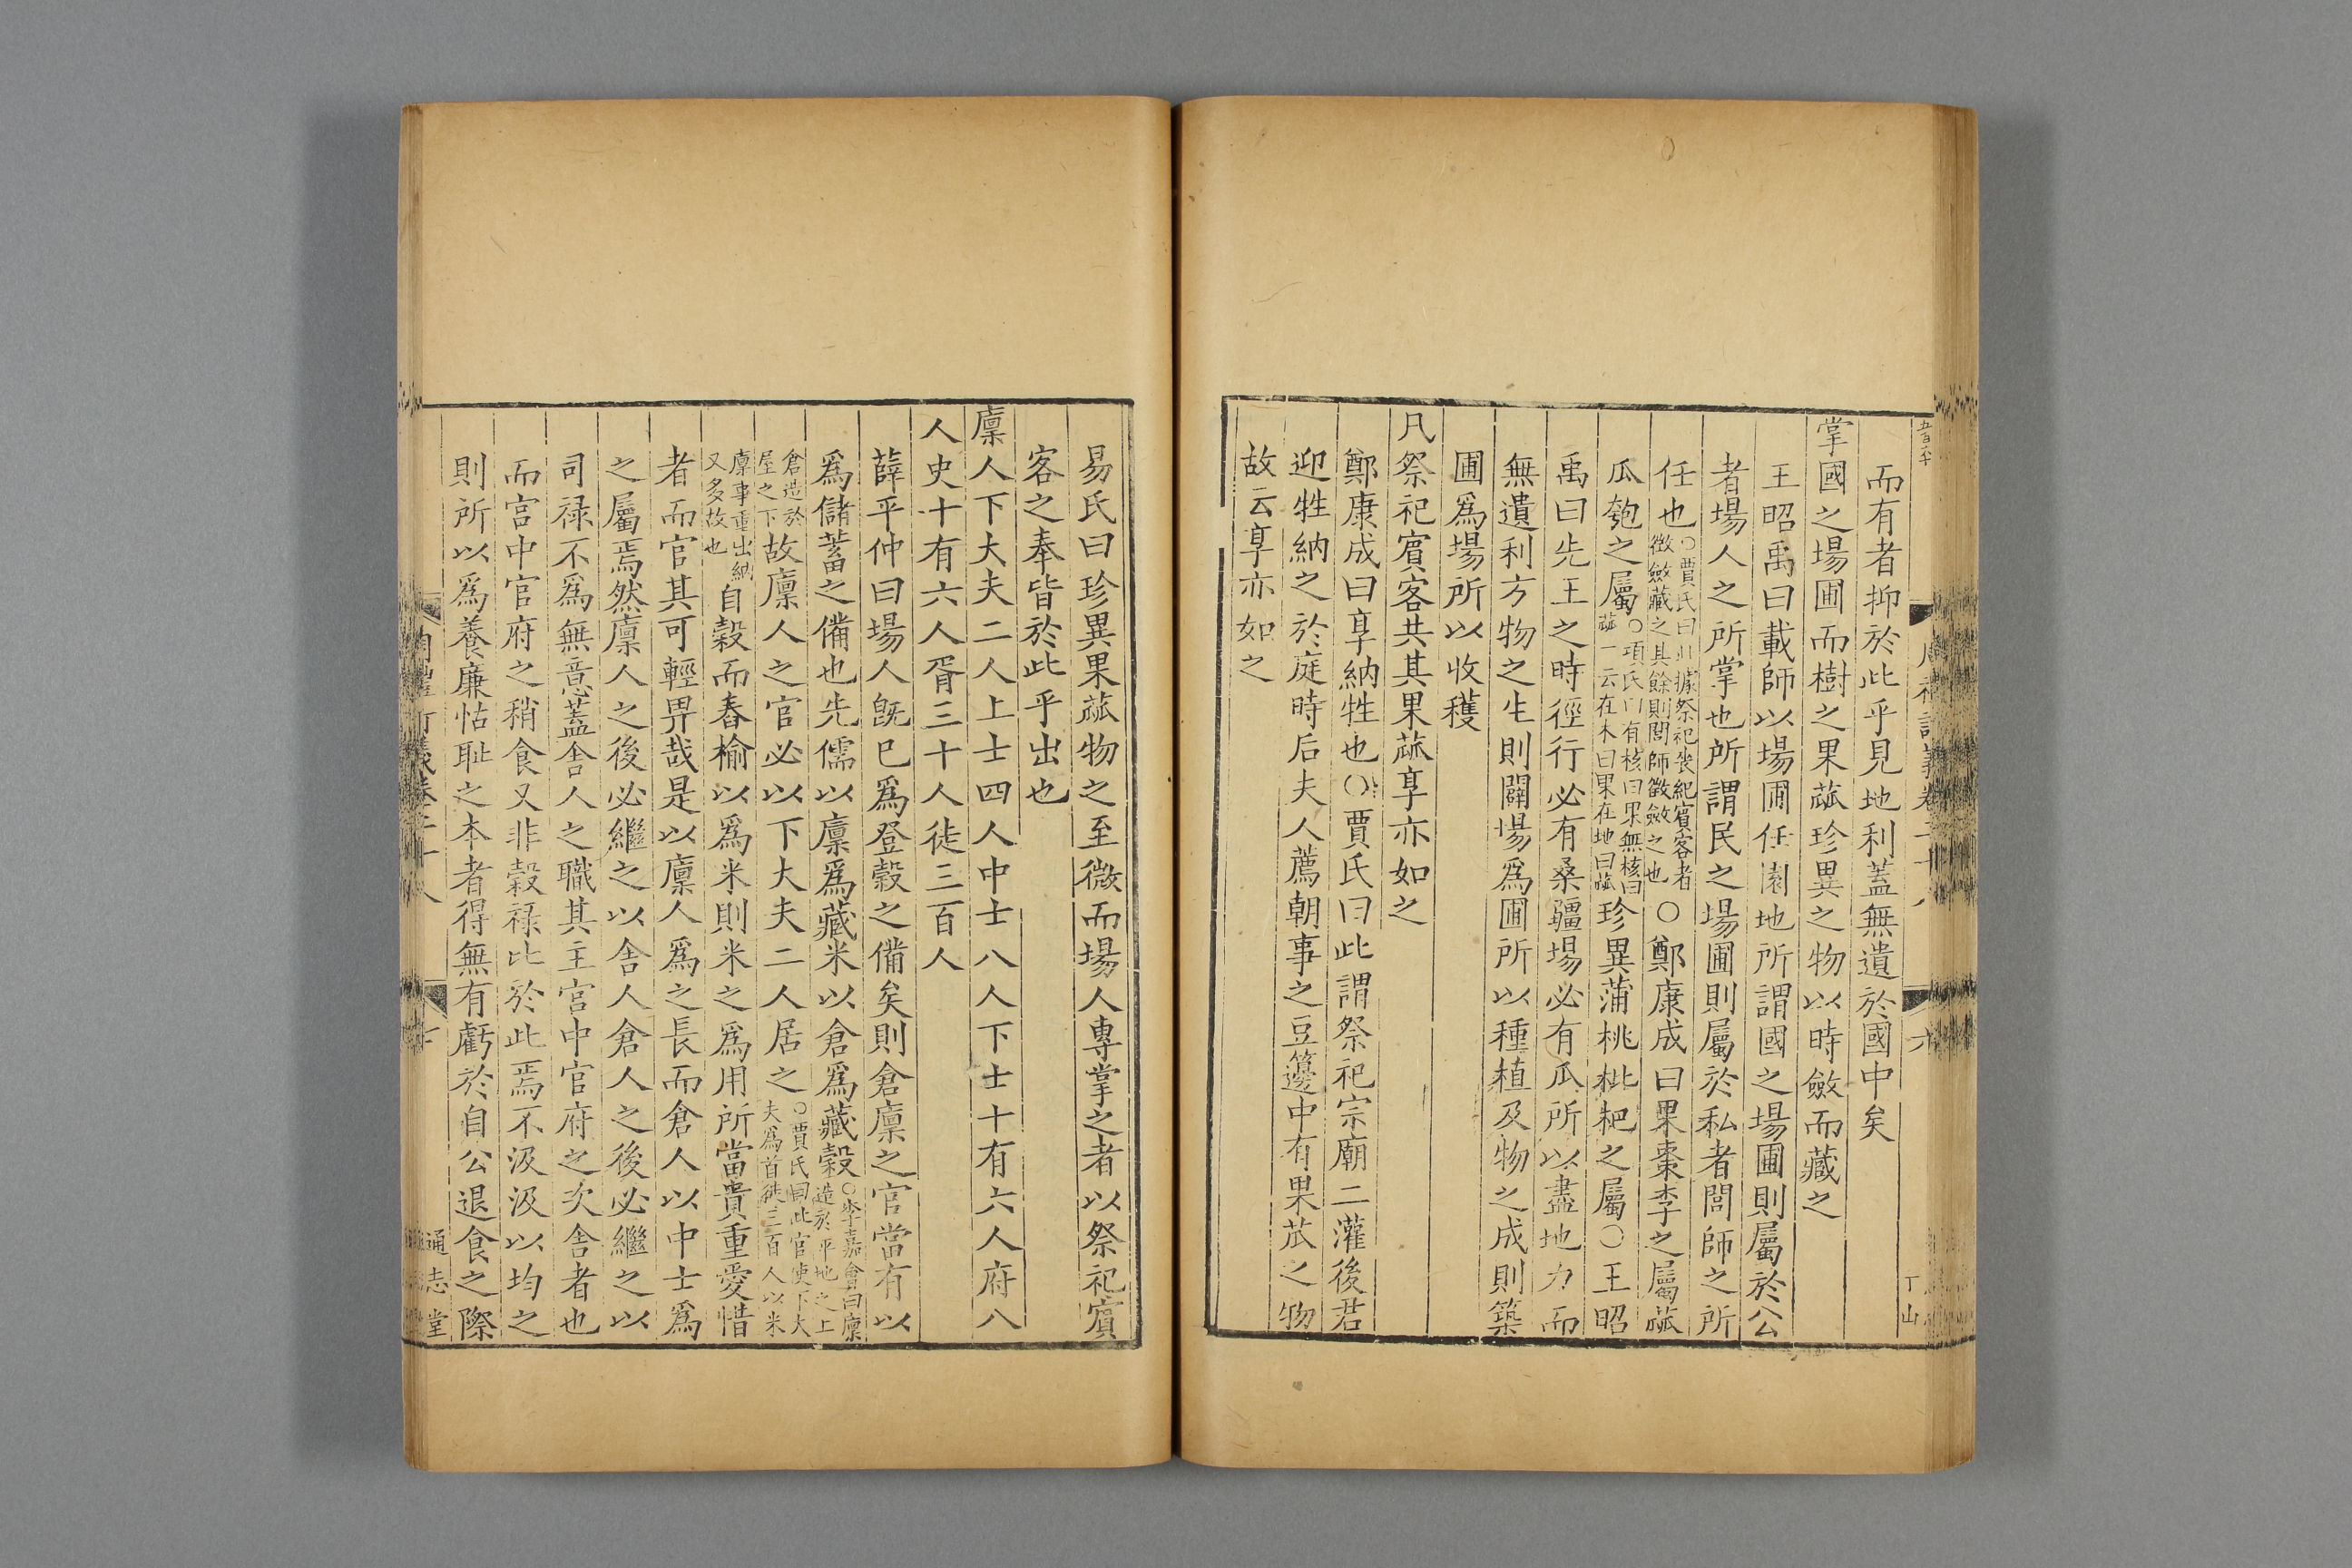 而有者抑於此乎見地利蓋無遺於國中矣
掌國之場圃而樹之果蓏珍異之物以時斂而藏之
王昭禹曰載師以場圃任園地所謂國之場圃則屬於公
者場人之所掌也所謂民之場圃則屬於私者閭師之所
任也○賈氏曰此據祭祀喪紀賓客者徴斂藏之其餘則閭師徵斂之也○鄭康成曰果棗李之屬蓏
瓜匏之屬○項氏曰有核曰果無核曰蓏一云在木曰果在地曰蓏珍異蒲桃枇杷之屬○王昭
禹曰先王之時徑行必有桑疆場必有瓜所以盡地力而
無遺利方物之生則闢場爲圃所以種植及物之成則築
圃爲場所以收穫
凡祭祀賓客共其果蓏享亦如之
鄭康成曰享納牲也○賈氏曰此謂祭祀宗廟二灌後君
迎牲納之於庭時后夫人薦朝事之豆籩中有果苽之物
故云享亦如之
易氏曰珍異果蓏物之至微而場人專掌之者以祭祀賓
客之奉皆於此乎出也
廩人下大夫二人上士四人中士八人下士十有六人府八
人史十有六人胥三十人徒三百人
薛平仲曰場人旣巳爲登穀之備矣則倉廩之官當有以
爲儲蓄之備也先儒以廩爲藏米以倉爲藏穀○李嘉會曰廩造於平地之上
倉造於屋之下故廩人之官必以下大夫二人居之○賈氏曰此官使下大夫爲首徒三百人以米
廩事重出納又多故也自穀而舂榆以爲米則米之爲用所當貴重愛惜
者而官其可輕畀哉是以廩人爲之長而倉人以中士爲
之屬焉然廩人之後必繼之以舍人倉人之後必繼之以
司禄不爲無意蓋舍人之職其主宫中官府之次舍者也
而宫中官府之稍食又非穀禄比於此焉不汲汲以均之
則所以爲養廉怙耻之本者得無有虧於自公退食之際
通志堂